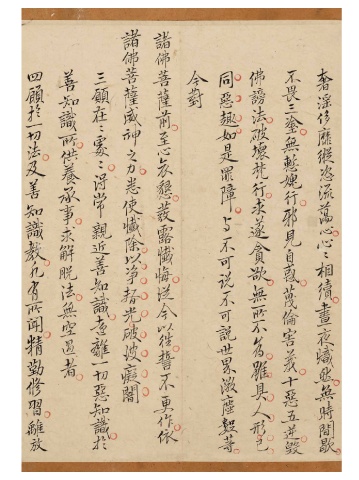 奢淫侈靡縱恣流蕩心心相續晝夜熾然無時間歇
不畏三塗無慙愧行邪見自惑蔑倫害義十惡五逆毀
佛謗法破壞梵行求遂貪欲無所不為雖具人形已
同惡趣如是罪障與不可說不可說世界微塵數等
今對
諸佛菩薩前至心哀懇發露懺悔從今以往誓不更作依
諸佛菩薩威神之力悉使懺除以淨智光破彼癡闇
三願在在處處得常親近善知識遠離一切惡知識於
善知識所供養承事求解脫法無空過者
四願於一切法及善知識教凡有所聞精勤修習離放